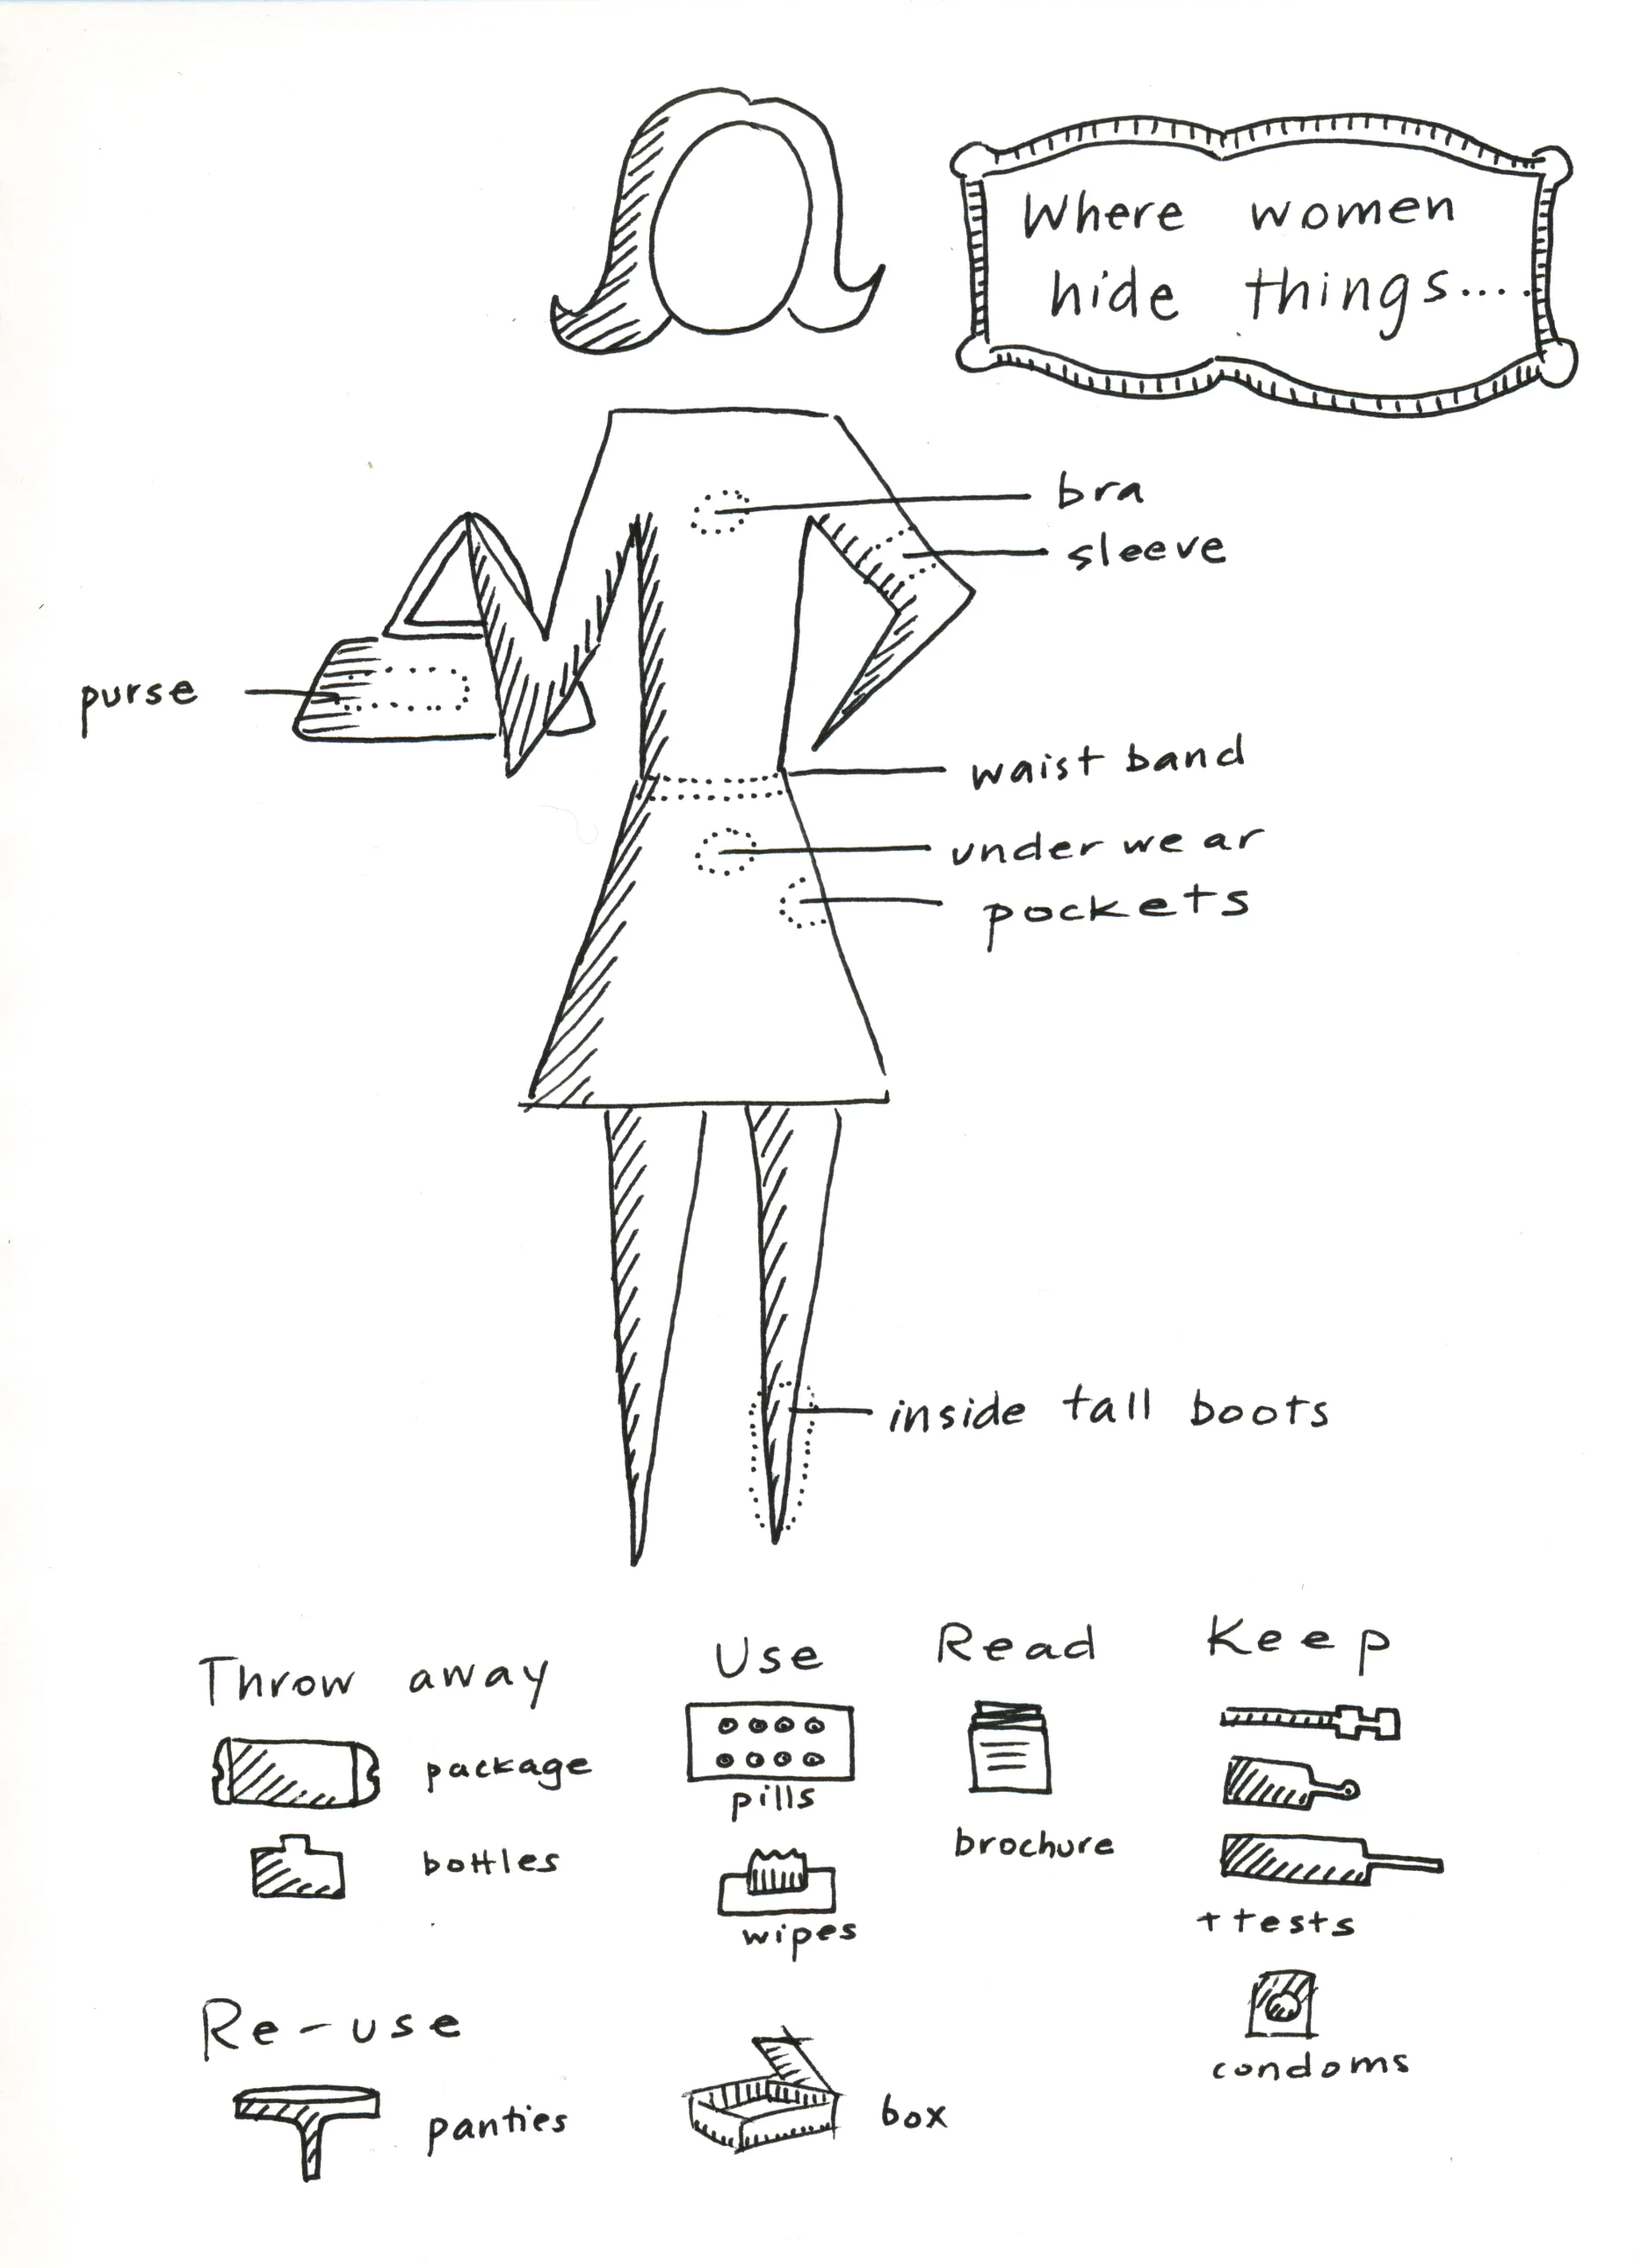 Where women
hide things....
bra
sleeve
purse
waist band
underwear
pockets
inside tall boots
Throw away
package
bottles
Use
pills
wipes
Read
brochure
Keep
+ tests
condoms
Re-use
panties
box